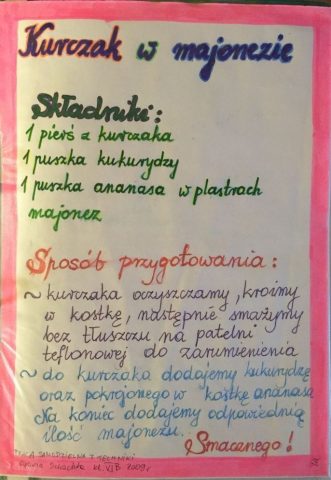 Kurczak w majonezie
Składniki:
1 pierś z kurczaka
1 puszka kukurydzy
1 puszka ananasa w plastrach
majonez
Sposób przygotowania:
~ kurczaka oczyszczamy, kroimy
w kostkę, następnie smażymy
bez tłuszczu na patelni
teflonowej do zarumienienia
~ do kurczaka dodajemy kukurydzę
oraz pokrojonego w kostkę ananasa
Na koniec dodajemy odpowiednią
ilość majonezu.
Smacznego!
PRACA SAMODZIELNA Z TECHNIKI
kl. VI B 2009r.